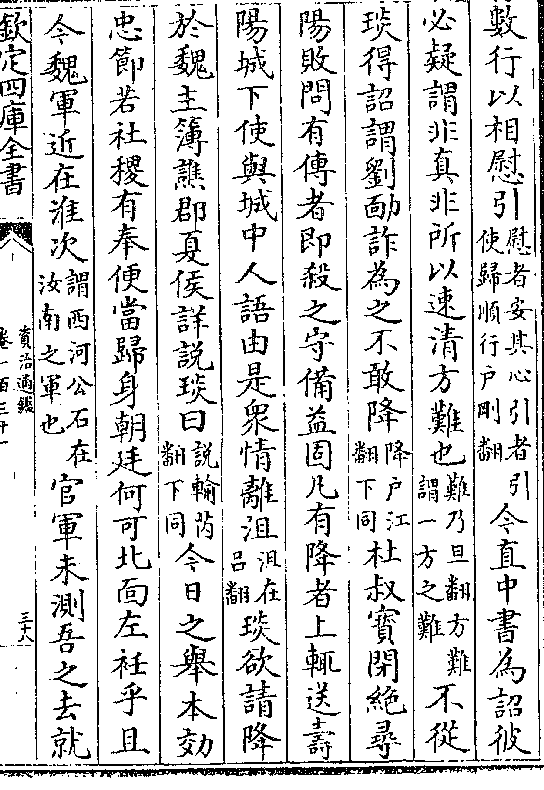 數行以相慰引慰者安其心引者引使歸順行户剛翻今直中書為詔彼
必疑謂非真非所以速清方難也難乃旦翻方難謂一方之難不從
琰得詔謂劉勔詐為之不敢降降户江翻下同杜叔寶閉絶尋
陽敗問有傳者即殺之守備益固凡有降者上輒送壽
陽城下使與城中人語由是衆情離沮沮在吕翻琰欲請降
於魏主簿譙郡夏侯詳説琰曰説輸芮翻下同今日之舉本効
忠節若社稷有奉便當歸身朝廷何可北面左衽乎且
今魏軍近在淮次謂西河公石在汝南之軍也官軍未測吾之去就
欽定四庫全書
資治通鑑
卷一百三十一
三十八